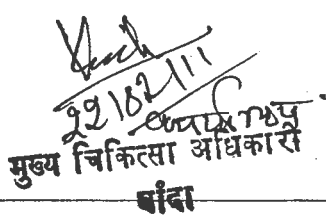 22/02/11
मुख्य चिकित्सा अधिकारी
बांदा